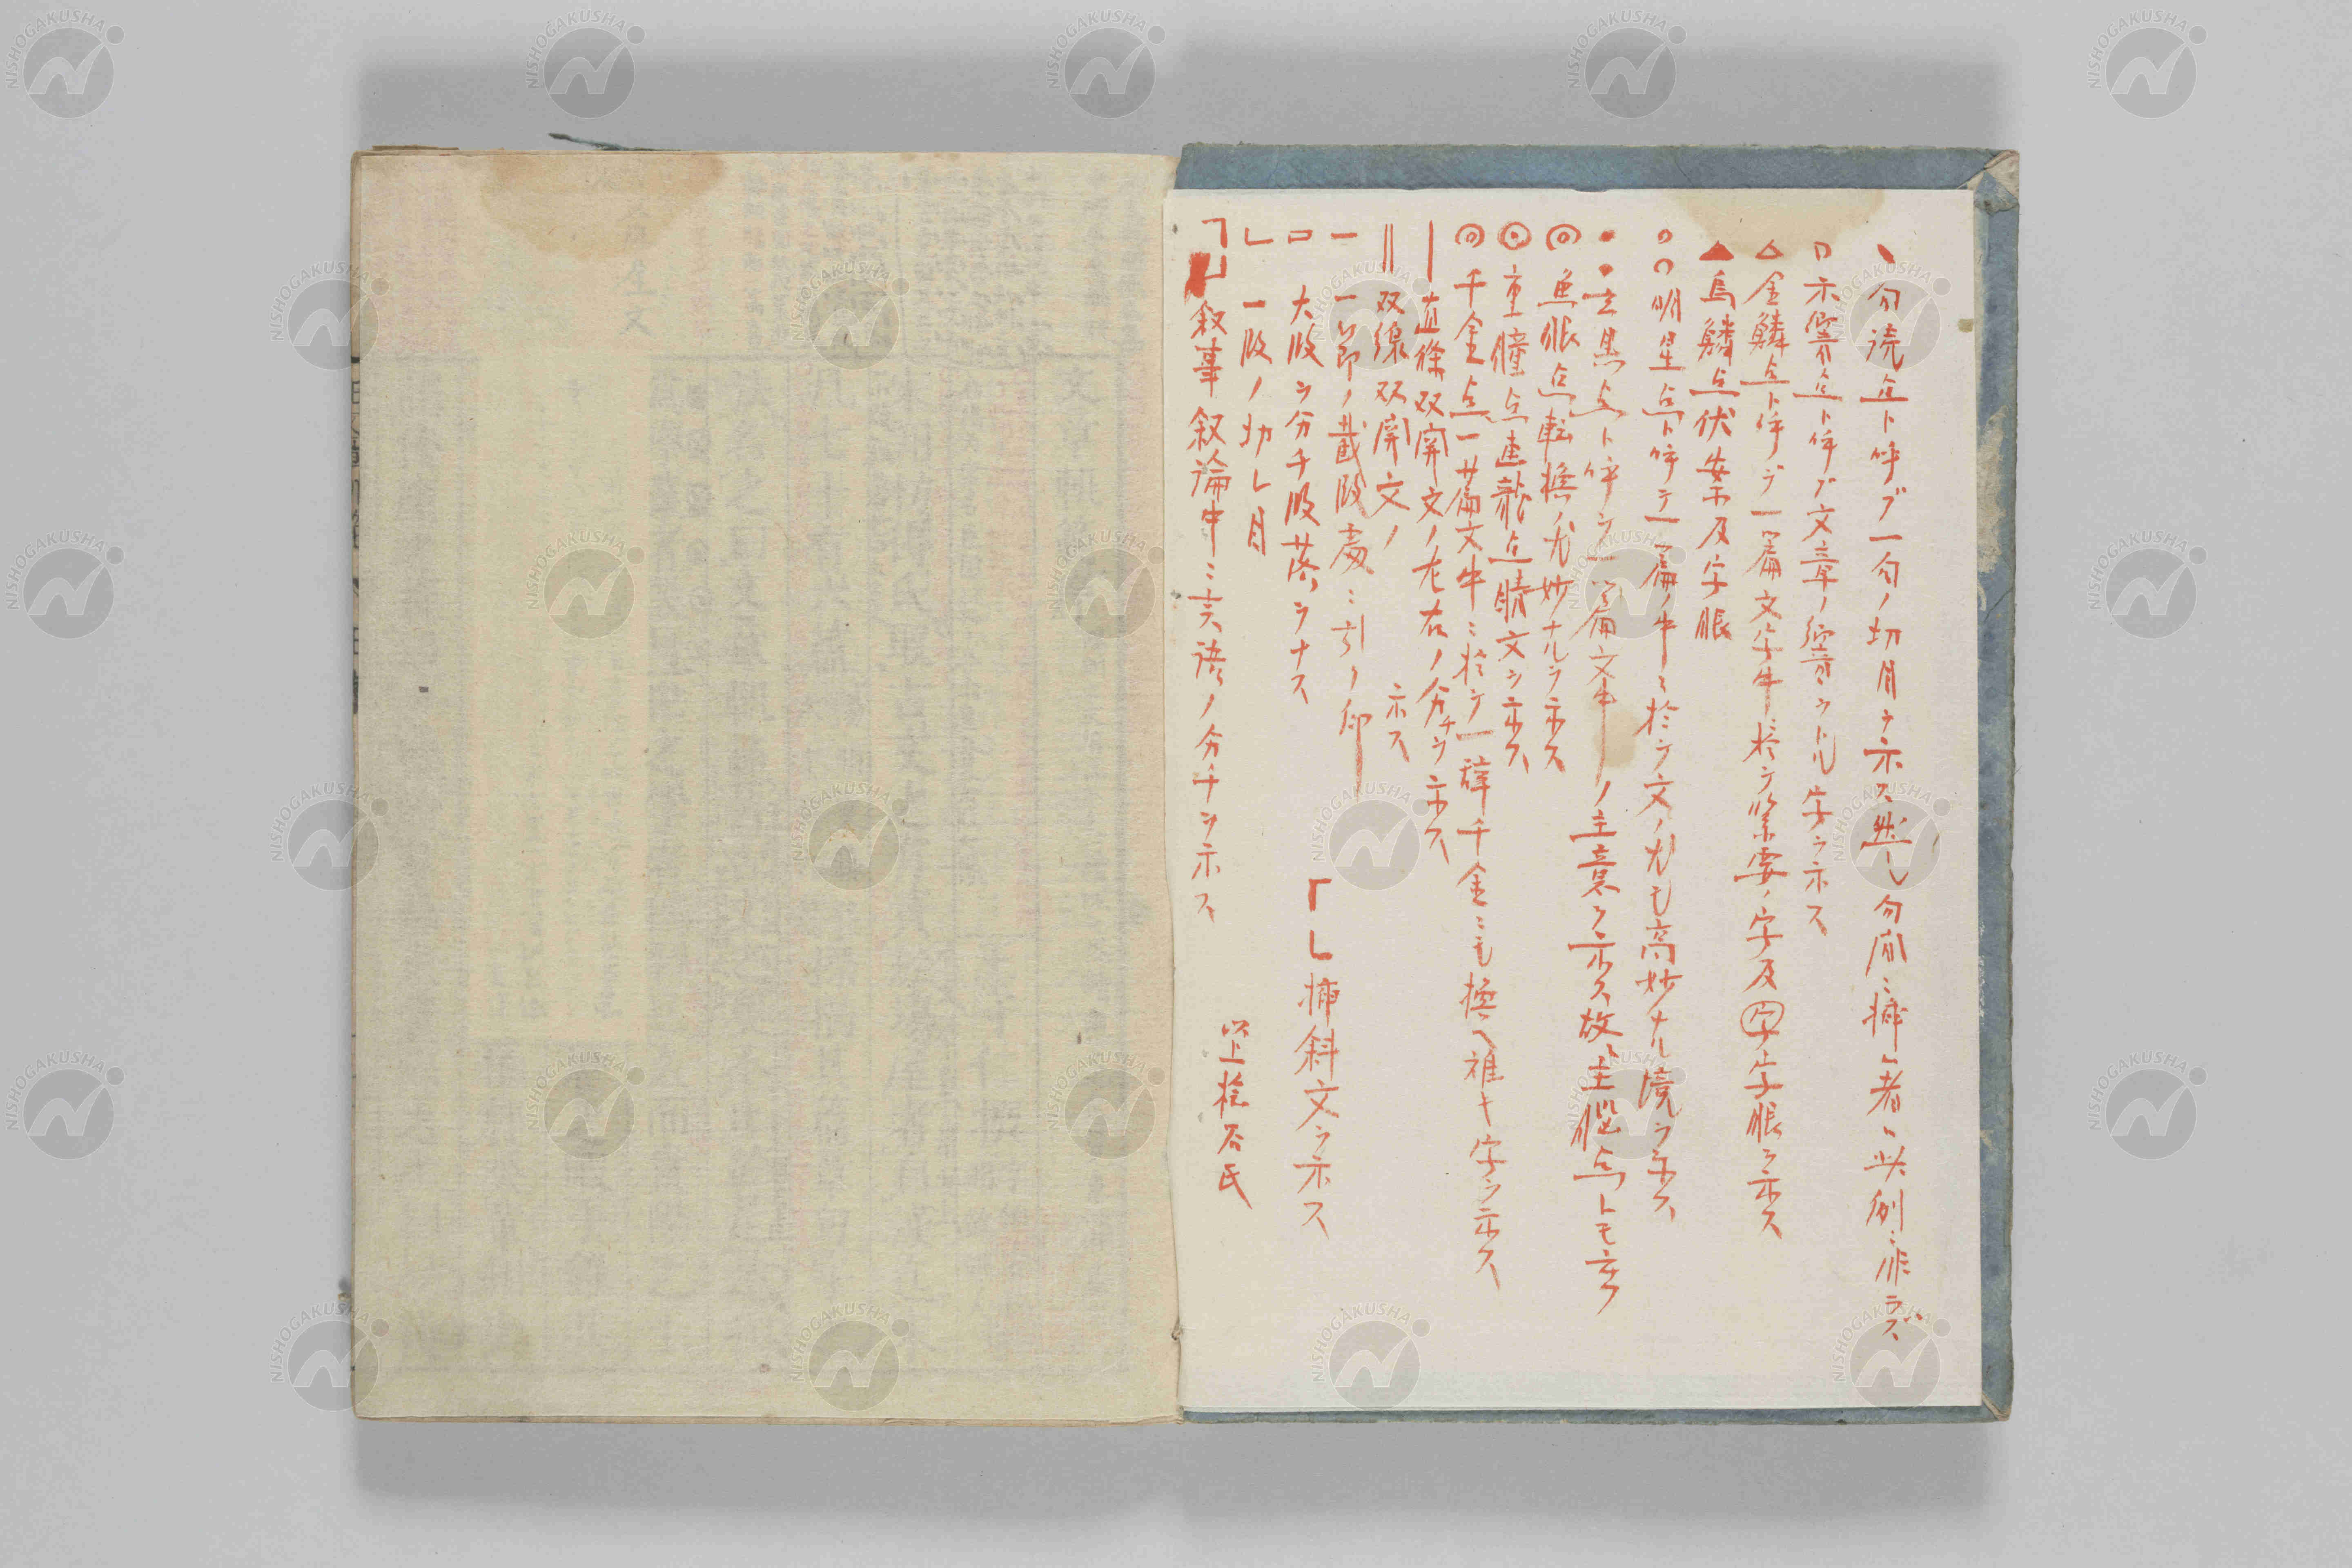 ヽ 句読点ト呼ブ一句ノ切目ヲ示ス然レ𪜈句間ニ挿ム者ハ此例ニ非ラズ
□ 示響点ト呼ブ文章ノ響ヲトル字ヲ示ス
△ 金鱗点ト呼デ一篇文字中於テ緊要ノ字及字眼ヲ示ス
▲ 烏鱗点伏案及字眼
○○ 明星点ト呼テ一篇ノ中ニ於テ文ノ尤モ高妙ナル境ヲ示ス
●● 玄黒点ト呼テ一篇文中ノ主意ヲ示ス故ニ主脳点トモ言フ
◎ 魚眼点転換ノ尤妙ナルヲ示ス
◉ 重瞳点画龍点睛文ヲ示ス
◎ 千金点一篇文中ニ於テ一語千金ニモ換ヘ難キ字ヲ示ス
| 直条双関文ノ左右ノ分チヲ示ス
‖ 双線双関文ノ 示ス
一 一節ノ截段處ニ引ク印
□ 大段ヲ分チ段落ヲナス
「 」挿斜文ヲ示ス
└ 一段ノ切レ目
┐┘ 叙事叙論中ニ言語ノ分チヲ示ス
以上 石氏
NISHOGAKUSHA